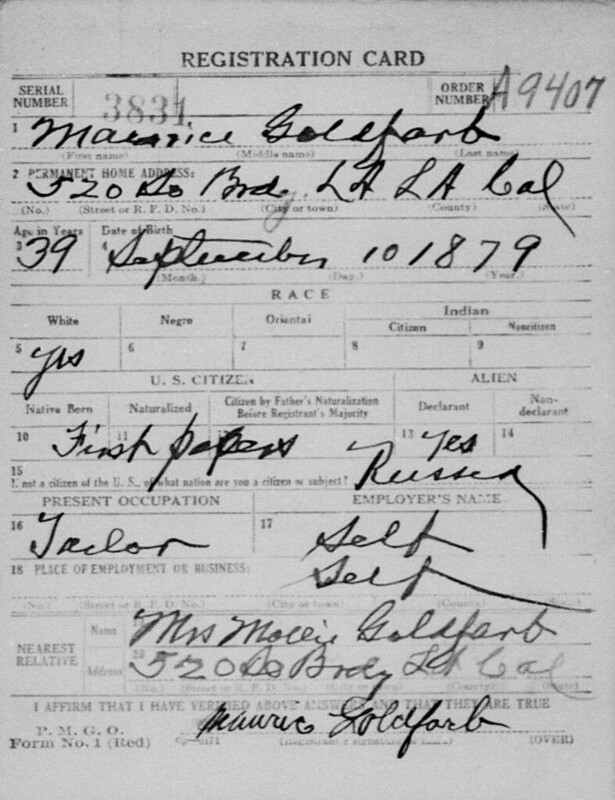 REGISTRATION CARD
SERIAL NUMBER 3831 ORDER NUMBER A9407
1 Maurice Goldfarb
(First name) (Middle name) (Last name)
2 PERMANENT HOME ADDRESS:
520 So Brdy LA LA Cal
(No.) (Street or R. F. D. No.) (City or town) (County) (State)
Age in Years Date of Birth
3 39 4 September 10 1879
(Month.) (Day.) (Year.)
RACE
White Negro Oriental Indian
Citizen Noncitizen
5 yes 6 7 8 9
U. S. CITIZEN ALIEN
Native Born Naturalized Citizen by Father's Naturalization Before Registrant's Majority Declarant Non-declarant
10 11 12 First papers 13 Yes 14
15 If not a citizen of the U. S., of what nation are you a citizen or subject? Russia
PRESENT OCCUPATION EMPLOYER'S NAME
16 Tailor 17 Self
18 PLACE OF EMPLOYMENT OR BUSINESS: Self
(No.) (Street or R. F. D. No.) (City or town) (County) (State)
NEAREST RELATIVE
Name Mrs Mollie Goldfarb
Address 20 520 So Brdy LA Cal
(No.) (Street or R. F. D. No.) (City or town) (County) (State)
I AFFIRM THAT I HAVE VERIFIED ABOVE ANSWERS AND THAT THEY ARE TRUE
P. M. G. O.
Form No. 1 (Red) Maurice Goldfarb
(Registrant's signature or mark) (OVER)